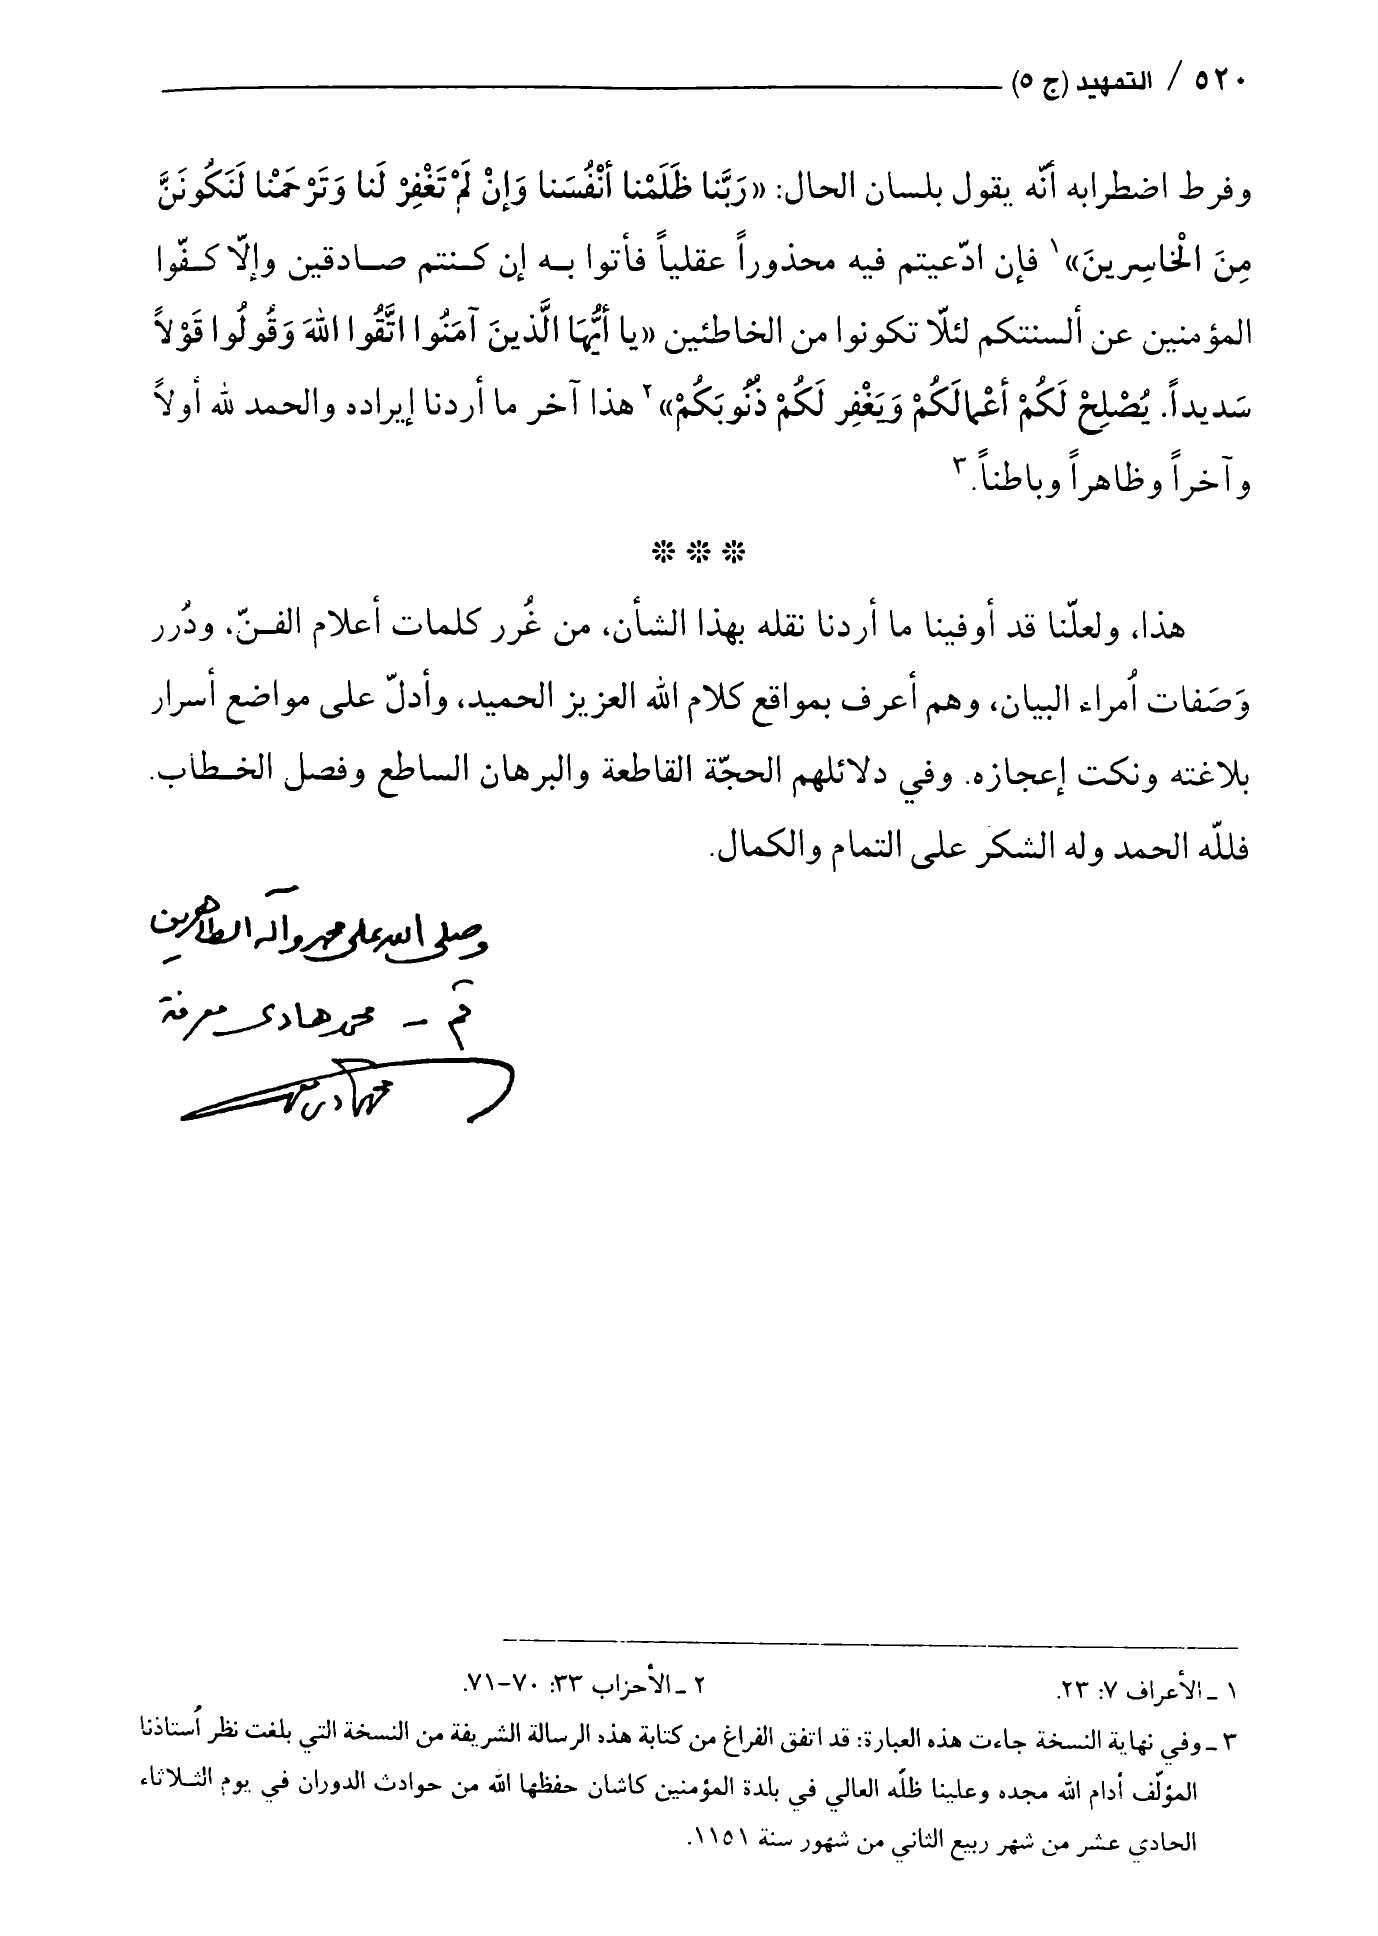 ٥٢٠ / التمهيد (ج ٥)
وفرط اضطرابه أنّه يقول بلسان الحال: «رَبَّنا ظَلَمْنا أنْفُسَنا وَإنْ لَمْ تَغْفِرْ لَنا وَتَرْحَمْنا لَنَكُونَنَّ
مِنَ الْخاسِرينَ»١ فإن ادّعيتم فيه محذوراً عقلياً فأتوا به إن كنتم صادقين وإلّا كفّوا
المؤمنين عن ألسنتكم لئلّا تكونوا من الخاطئين «يا أيُّهَا الَّذينَ آمَنُوا اتَّقُوا اللهَ وَقُولُوا قَوْلاً
سَديداً. يُصْلِحْ لَكُمْ أعْمالَكُمْ وَيَغْفِر لَكُمْ ذُنُوبَكُمْ»٢ هذا آخر ما أردنا إيراده والحمد لله أولاً
وآخراً وظاهراً وباطناً.٣
❊ ❊ ❊
هذا، ولعلّنا قد أوفينا ما أردنا نقله بهذا الشأن، من غُرر كلمات أعلام الفنّ، ودُرر
وَصَفات اُمراء البيان، وهم أعرف بمواقع كلام الله العزيز الحميد، وأدلّ على مواضع أسرار
بلاغته ونكت إعجازه. وفي دلائلهم الحجّة القاطعة والبرهان الساطع وفصل الخطاب.
فللّه الحمد وله الشكر على التمام والكمال.
وصلى الله على محمد وآله الطاهرين
قم – محمد هادي معرفة
١ ـ الأعراف ٧: ٢٣. ٢ ـ الأحزاب ٣٣: ٧٠-٧١.
٣ ـ وفي نهاية النسخة جاءت هذه العبارة: قد اتفق الفراغ من كتابة هذه الرسالة الشريفة من النسخة التي بلغت نظر اُستاذنا
المؤلّف أدام الله مجده وعلينا ظلّه العالي في بلدة المؤمنين كاشان حفظها الله من حوادث الدوران في يوم الثلاثاء
الحادي عشر من شهر ربيع الثاني من شهور سنة ١١٥١.